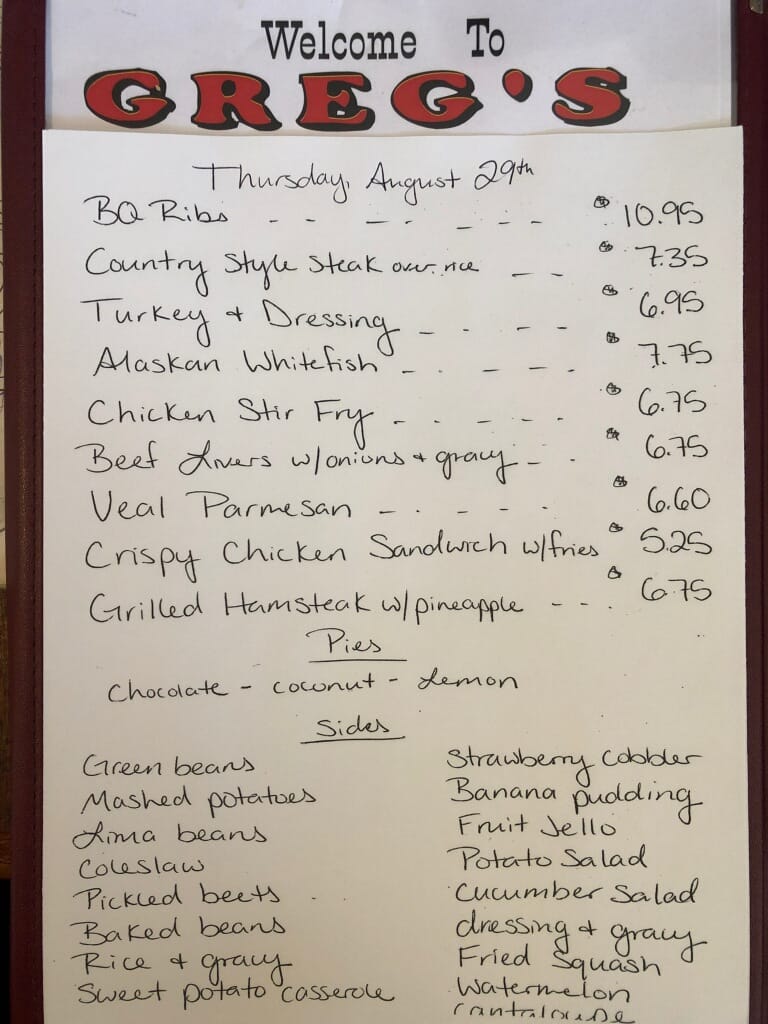 Welcome To
GREG'S
Thursday, August 29th
BQ Ribs - - - - - - - $10.95
Country Style Steak over rice - - $7.35
Turkey + Dressing - - - - $6.95
Alaskan Whitefish - - - - - $7.75
Chicken Stir Fry - - - - - $6.75
Beef Livers w/onions + gravy - - $6.75
Veal Parmesan - - - - - $6.60
Crispy Chicken Sandwich w/fries $5.25
Grilled Hamsteak w/pineapple - - - $6.75
Pies
Chocolate - coconut - Lemon
Sides
Green beans
Mashed potatoes
Lima beans
Coleslaw
Pickled beets
Baked beans
Rice + gravy
Sweet potato casserole
Strawberry cobbler
Banana pudding
Fruit Jello
Potato Salad
Cucumber Salad
dressing + gravy
Fried Squash
Watermelon
Cantaloupe